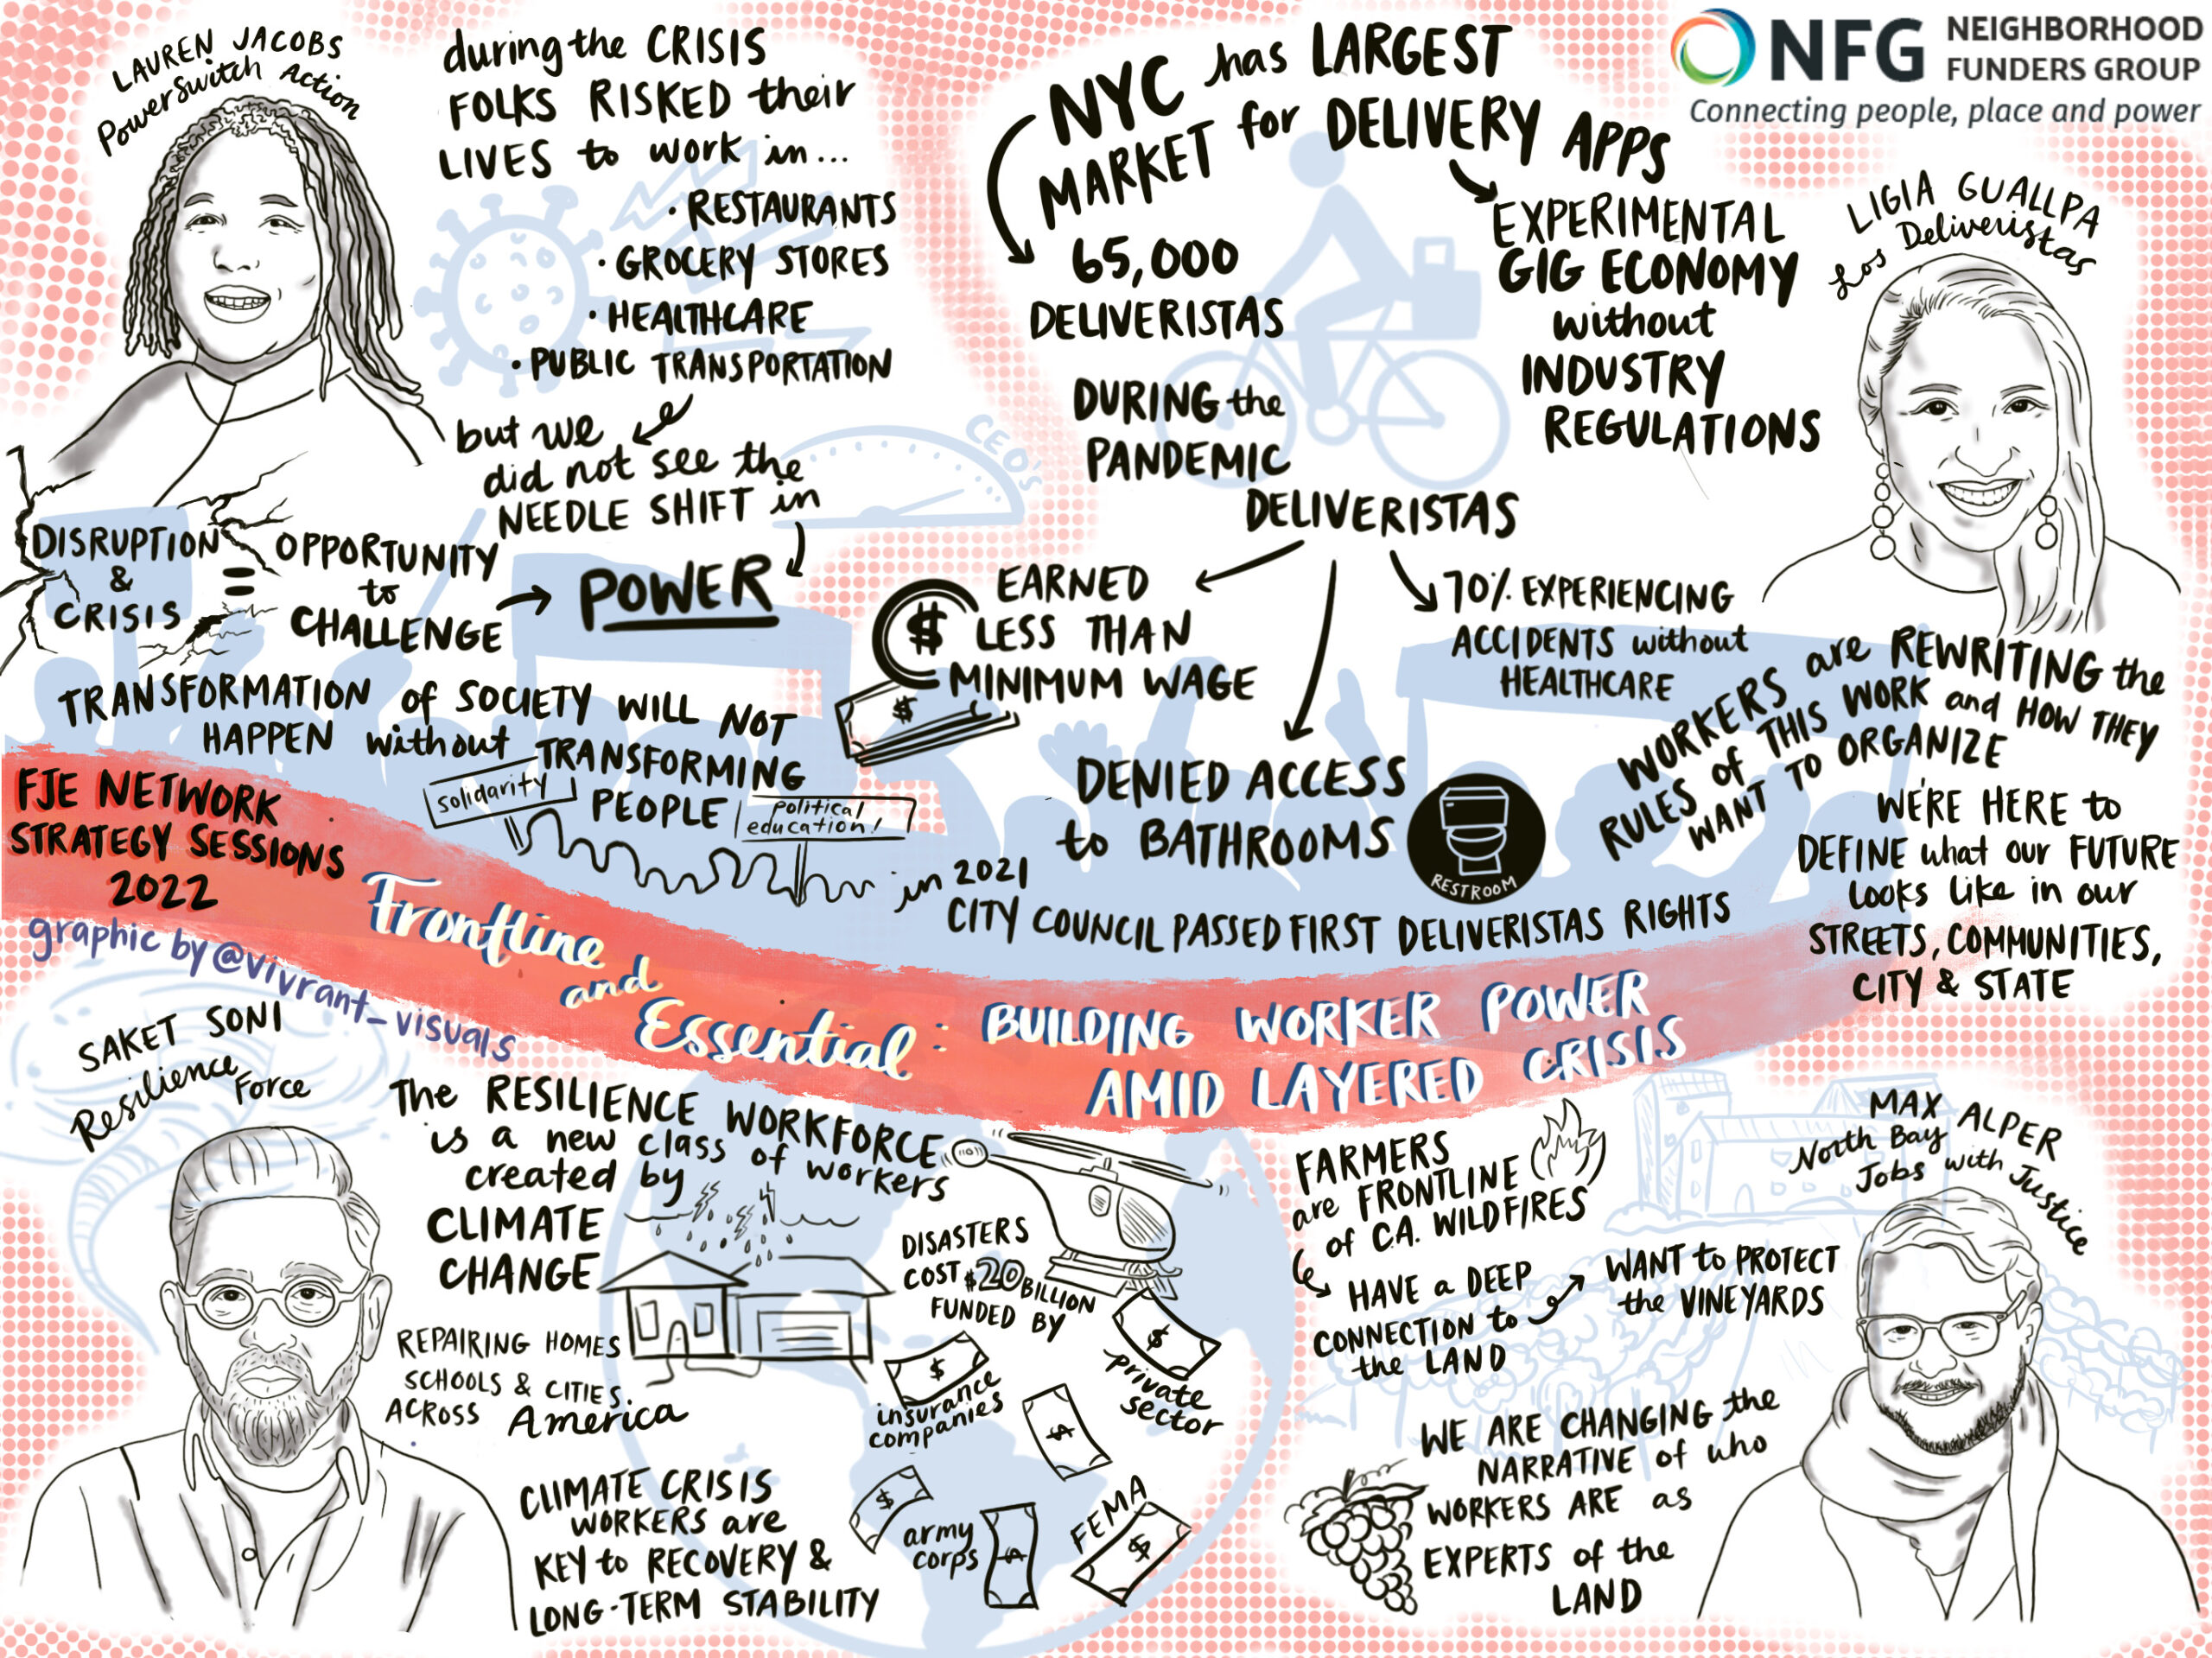 LAUREN JACOBS
PowerSwitch Action
during the CRISIS
FOLKS RISKED their
LIVES to work in...
• RESTAURANTS
• GROCERY STORES
• HEALTHCARE
• PUBLIC TRANSPORTATION
but we
did not see the
NEEDLE SHIFT in
POWER
CEO'S
DISRUPTION
&
CRISIS
=
OPPORTUNITY
to
CHALLENGE
TRANSFORMATION of SOCIETY WILL NOT
HAPPEN without TRANSFORMING
PEOPLE
solidarity
political
education!
NYC has LARGEST
MARKET for DELIVERY APPS
65,000
DELIVERISTAS
EXPERIMENTAL
GIG ECONOMY
without
INDUSTRY
REGULATIONS
DURING the
PANDEMIC
DELIVERISTAS
$
EARNED
LESS THAN
MINIMUM WAGE
$
DENIED ACCESS
to BATHROOMS
RESTROOM
70% EXPERIENCING
ACCIDENTS without
HEALTHCARE
in 2021
CITY COUNCIL PASSED FIRST DELIVERISTAS RIGHTS
NFG
NEIGHBORHOOD
FUNDERS GROUP
Connecting people, place and power
LIGIA GUALLPA
Los Deliveristas
WORKERS are REWRITING the
RULES of THIS WORK and HOW THEY
WANT TO ORGANIZE
WE'RE HERE to
DEFINE what our FUTURE
looks like in our
STREETS, COMMUNITIES,
CITY & STATE
FJE NETWORK
STRATEGY SESSIONS
2022
graphic by @vivrant_visuals
Frontline
and
Essential:
BUILDING WORKER POWER
AMID LAYERED CRISIS
SAKET SONI
Resilience
Force
The RESILIENCE WORKFORCE
is a new class of workers
created by
CLIMATE
CHANGE
REPAIRING HOMES
SCHOOLS & CITIES
ACROSS America
CLIMATE CRISIS
WORKERS are
KEY to RECOVERY &
LONG-TERM STABILITY
DISASTERS
COST $20 BILLION
FUNDED BY
$
private
sector
$
insurance
companies
$
$
army
corps
$
FEMA
$
FARMERS
are FRONTLINE
of C.A. WILDFIRES
HAVE a DEEP
CONNECTION to
the LAND
WANT to PROTECT
the VINEYARDS
WE ARE CHANGING the
NARRATIVE of who
WORKERS ARE as
EXPERTS of the
LAND
MAX ALPER
North Bay
Jobs with Justice